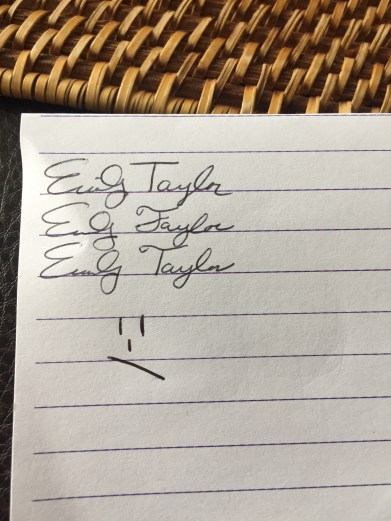 Emily Taylor
Emily Taylor
Emily Taylor